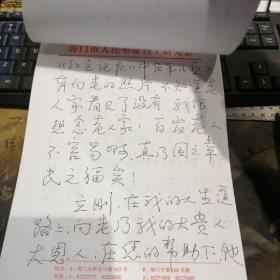 海门市人民革命烈士研究会
《红色记忆》中在第几页上
有向老的照片,不知道老
人家看见了没有,我很
想念老人家!百岁老人
不容易呀,真乃国之幸
民之福矣!
立刚,在我的人生道
路上,向老乃我的大贵人
大恩人,在您的帮助下,他